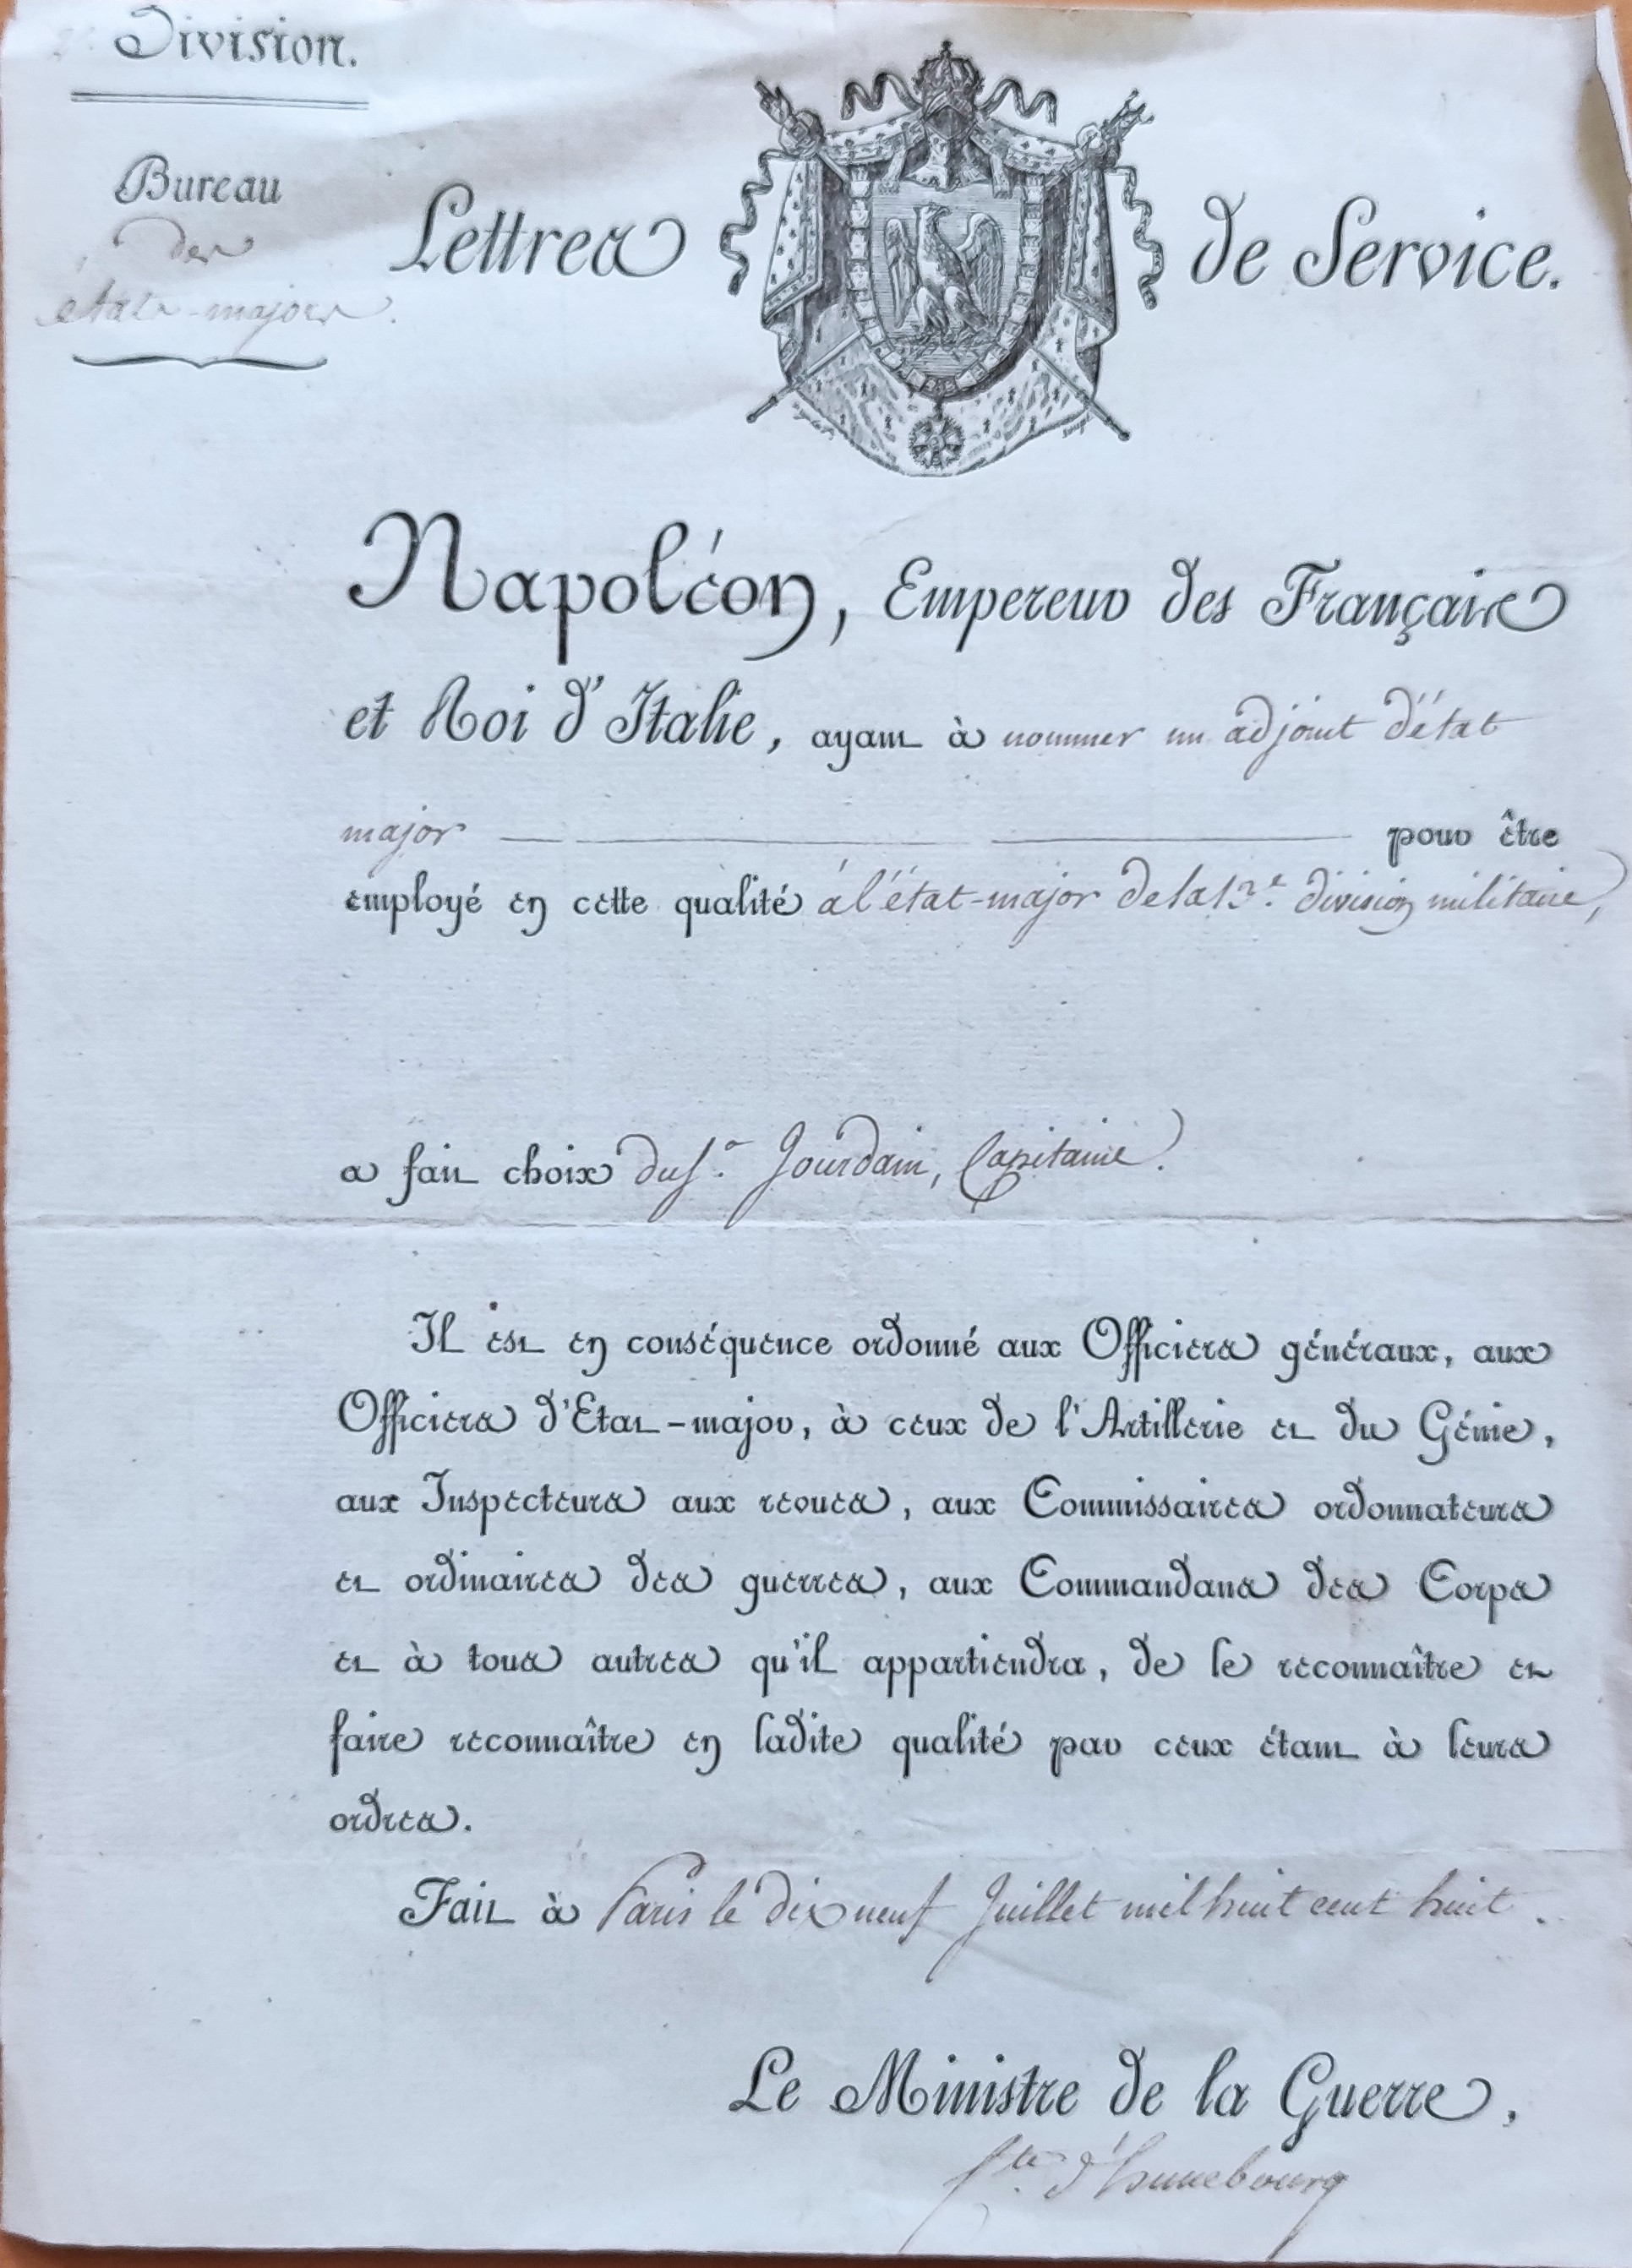 Division.
Bureau
des
états-majors.
Lettres de Service.
Napoléon, Empereur des Français
et Roi d'Italie, ayant à nommer un adjoint d'état
major pour être
employé en cette qualité à l'état-major de la 13e. division militaire,
a fait choix du Sr. Jourdain, Capitaine.
Il est en conséquence ordonné aux Officiers généraux, aux
Officiers d'Etat-major, à ceux de l'Artillerie et du Génie,
aux Inspecteurs aux revues, aux Commissaires ordonnateurs
et ordinaires des guerres, aux Commandans des Corps
et à tous autres qu'il appartiendra, de le reconnaître et
faire reconnaître en ladite qualité par ceux étant à leurs
ordres.
Fait à Paris le dix neuf Juillet mil huit cent huit.
Le Ministre de la Guerre,
Cte. d'hunebourg